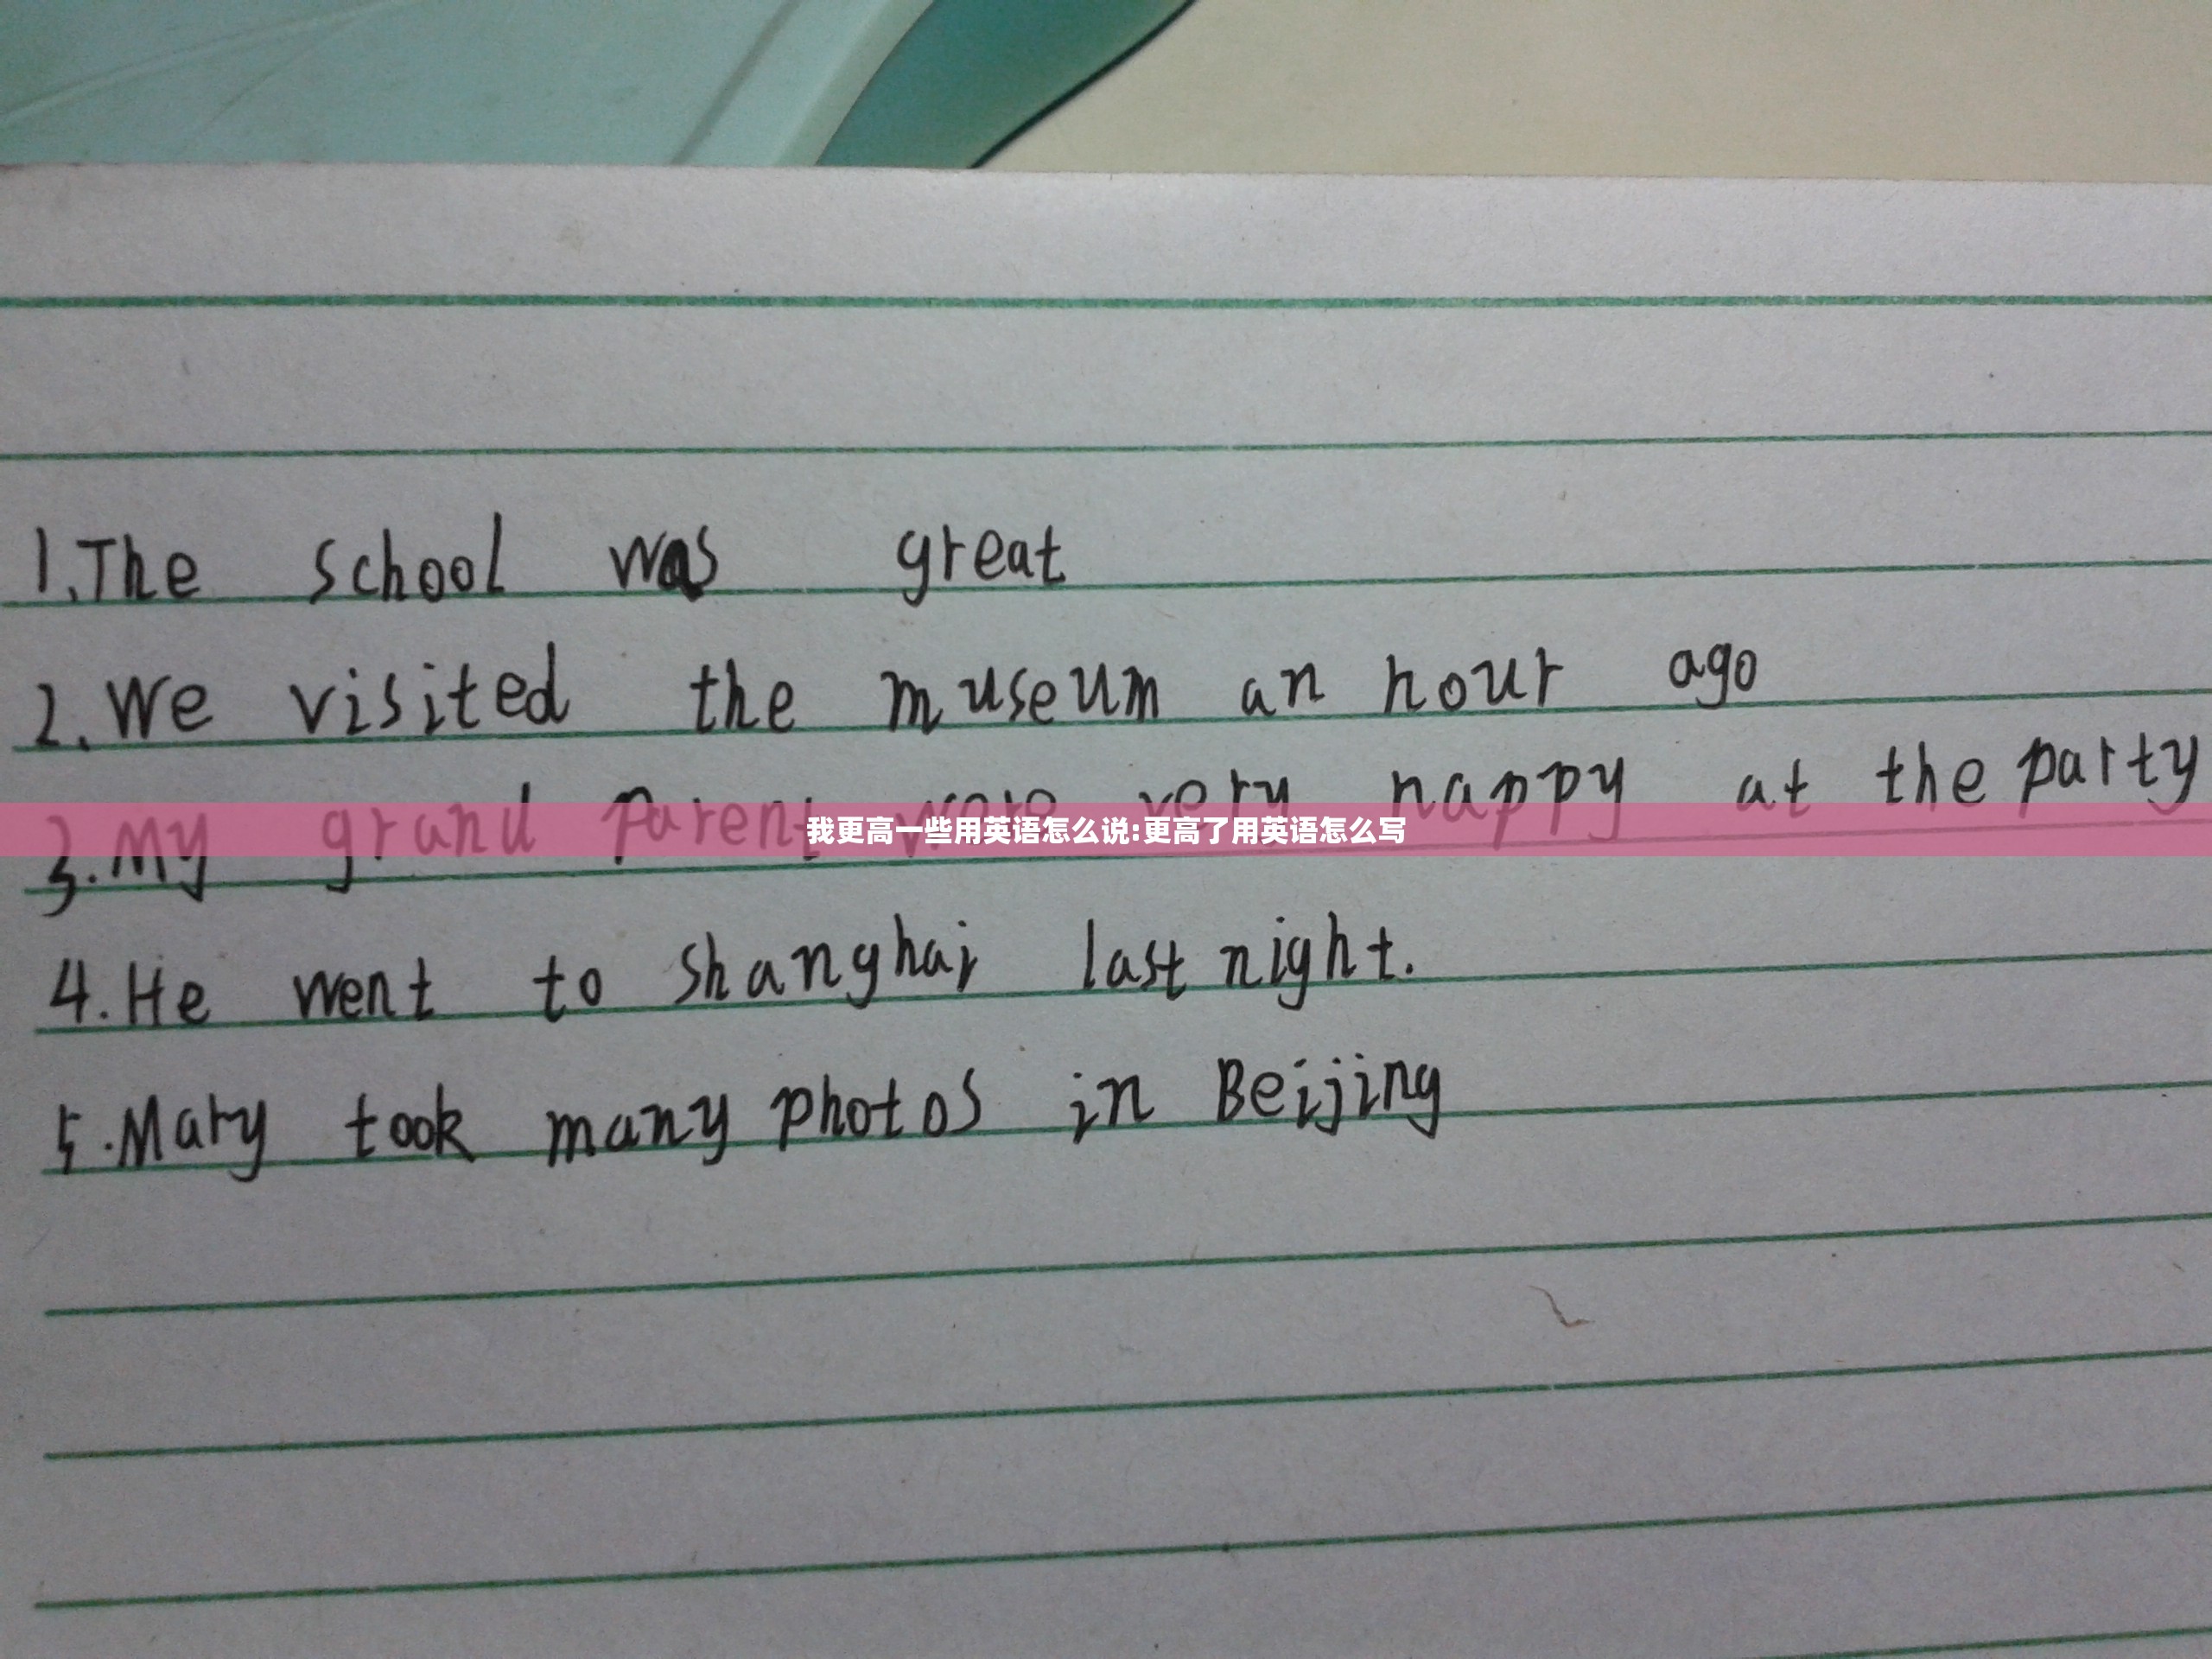 1.The school was great
2.We visited the museum an hour ago
3.My grand parent were very happy at the party
我更高一些用英语怎么说:更高了用英语怎么写
4.He went to Shanghai last night.
5.Mary took many photos in Beijing